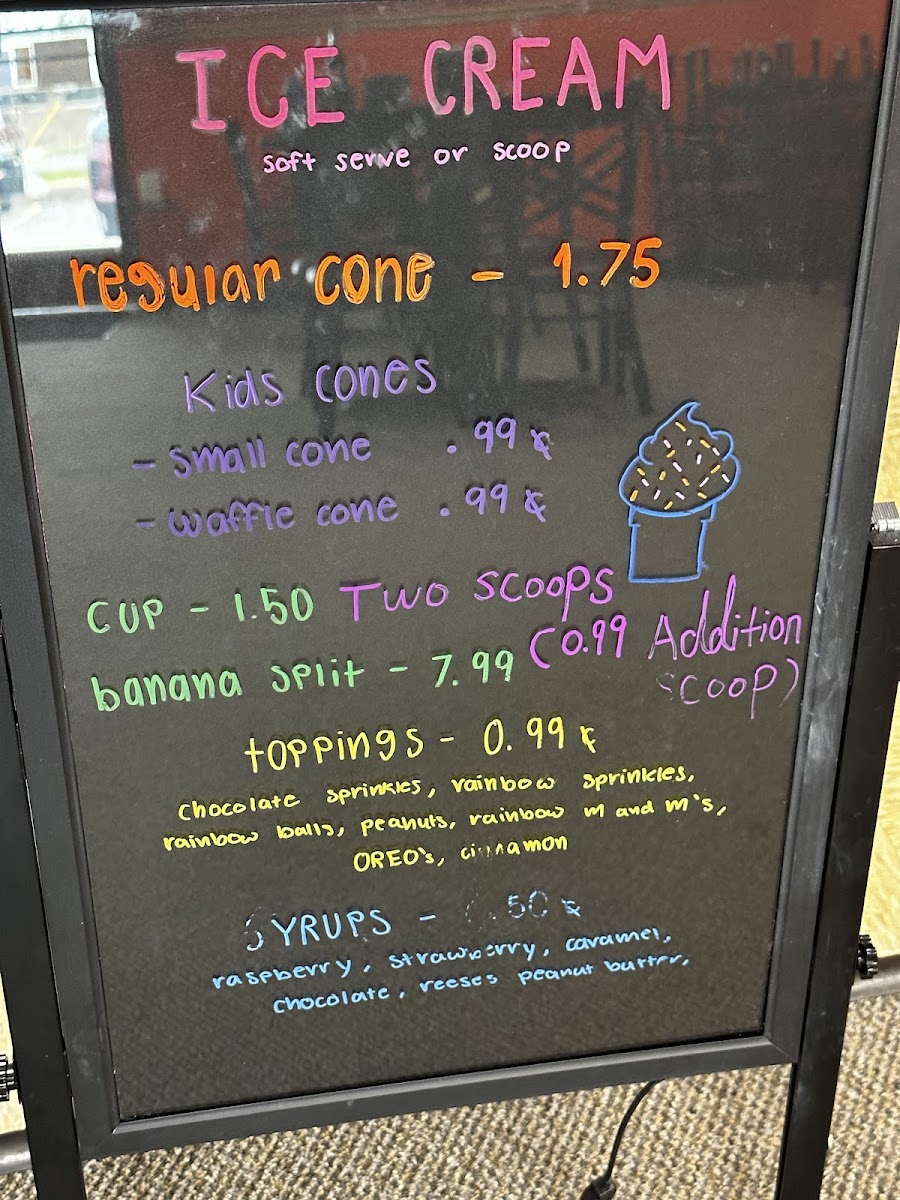 ICE CREAM
soft serve or scoop
regular cone - 1.75
Kids cones
- small cone .99¢
- waffle cone .99¢
CUP - 1.50 Two scoops
(0.99 Addition
scoop)
banana split - 7.99
toppings - 0.99¢
chocolate sprinkles, rainbow sprinkles,
rainbow balls, peanuts, rainbow m and m's,
OREO's, cinnamon
SYRUPS - 0.50¢
raspberry, strawberry, caramel,
chocolate, reeses peanut butter,